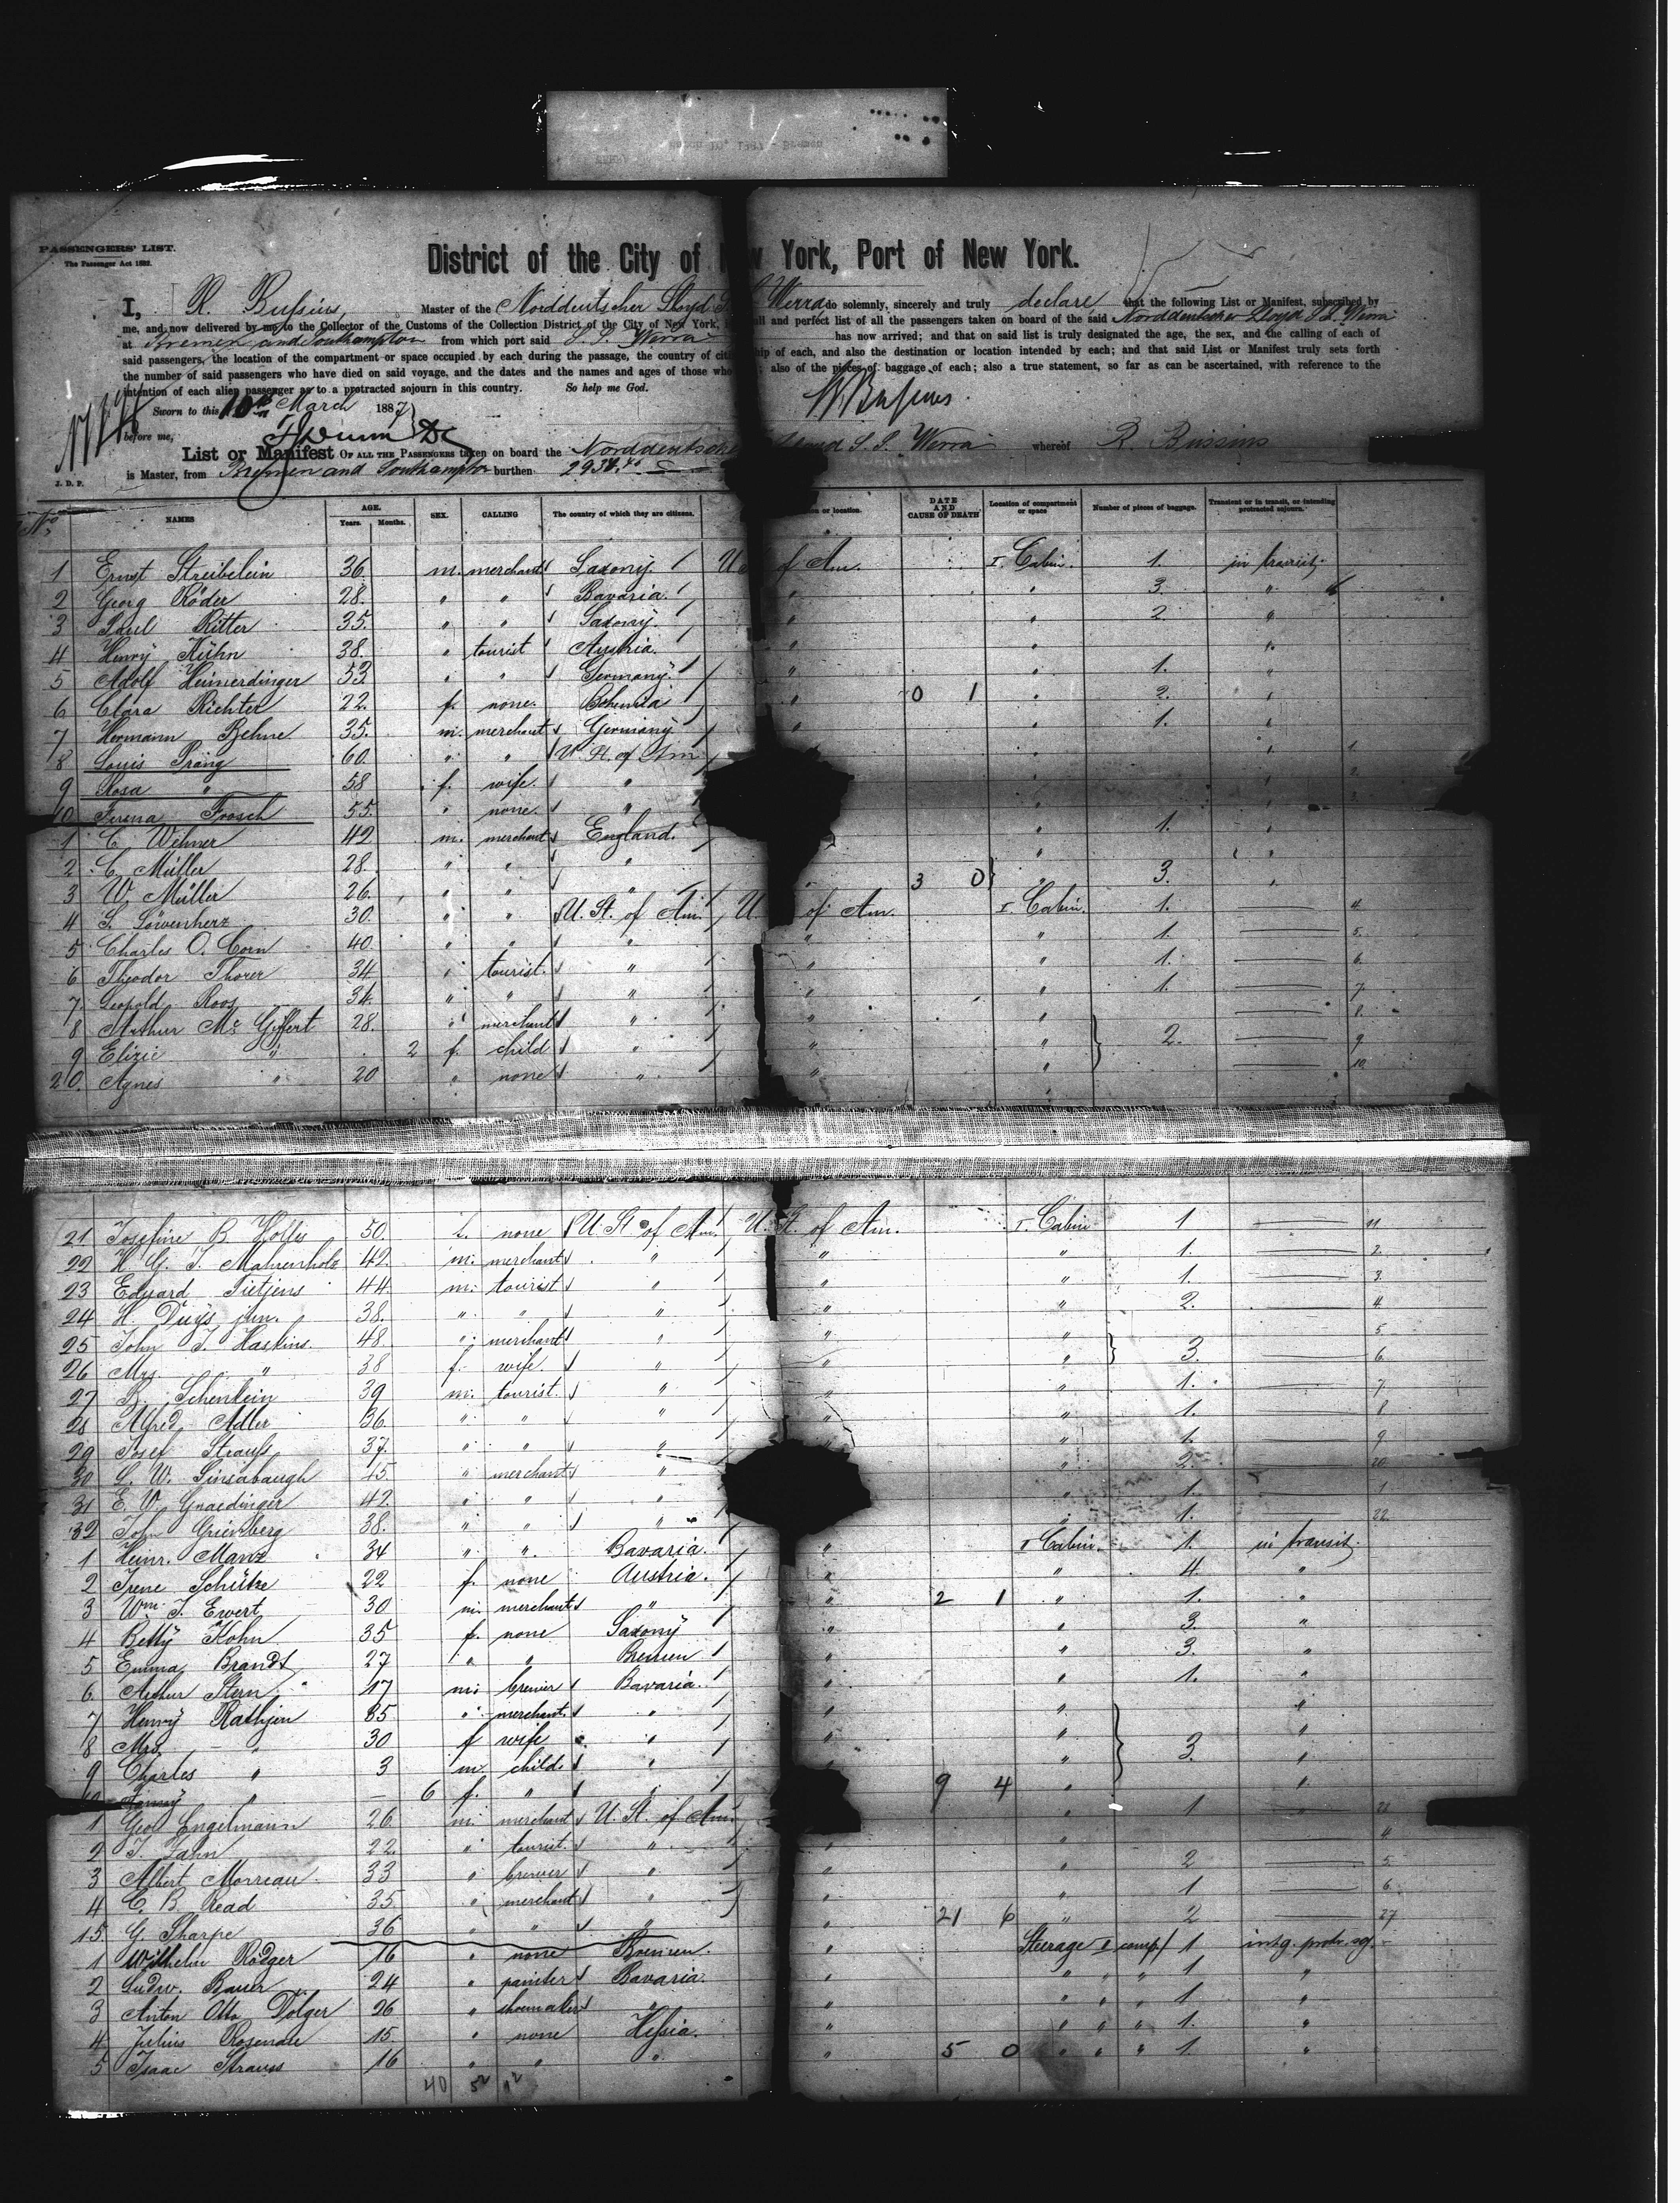 PASSENGERS' LIST.
The Passenger Act 1882.
District of the City of New York, Port of New York.
I, R. Bussius, Master of the Norddeutscher Lloyd S. S. Werra do solemnly, sincerely and truly declare that the following List or Manifest, subscribed by
me, and now delivered by me to the Collector of the Customs of the Collection District of the City of New York, full and perfect list of all the passengers taken on board of the said Norddeutscher Lloyd S. S. Werra
at Bremen and Southampton from which port said S. S. Werra has now arrived; and that on said list is truly designated the age, the sex, and the calling of each of
said passengers, the location of the compartment or space occupied by each during the passage, the country of citizenship of each, and also the destination or location intended by each; and that said List or Manifest truly sets forth
the number of said passengers who have died on said voyage, and the dates and the names and ages of those who ; also of the pieces of baggage of each; also a true statement, so far as can be ascertained, with reference to the
intention of each alien passenger as to a protracted sojourn in this country. So help me God.
Sworn to this 10th March 1887
before me,
List or Manifest OF ALL THE PASSENGERS taken on board the Norddeutscher Lloyd S. S. Werra whereof R. Bussius
J. D. P.
is Master, from Bremen and Southampton burthen
No NAMES AGE. Years. Months. SEX. CALLING The country of which they are citizens. or location. DATE AND CAUSE OF DEATH Location of compartment or space Number of pieces of baggage. Transient or in transit, or intending protracted sojourn.
1 Ernst Streibelein 36. m. merchant Saxony. U of Am. I. Cabin. 1. in transit.
2 Georg Röder 28. " " Bavaria. " " 3. "
3 Paul Ritter 35. " " Saxony. " " 2. "
4 Henry Kühn 38. " tourist Austria. " " "
5 Adolf Heimerdinger 53 " " Germany. " " 1. "
6 Clara Richter 22. f. none. Bohemia " 0 1 " 2. "
7 Hermann Behne 35. m. merchant Germany " " 1. "
8 Louis Prang 60. " " U. St. of Am. " 1.
9 Rosa " 58 f. wife. " " 2.
10 Ferena Frosch 55. " none. "
1 C. Wehner 42 m. merchant England. " 1. "
2 C. Müller 28. " " " " "
3 W. Müller 26. " " " " 3 0 " 3. "
4 S. Löwenherz 30. " " U. St. of Am. U of Am. I. Cabin. 1. 4.
5 Charles O. Corn 40. " " " " " 1. 5.
6 Theodor Thorer 34 " tourist. " " " 1. 6.
7 Leopold Roos 34. " " " " " 1. 7
8 Arthur Mc Giffert 28. " merchant " " " 8.
9 Elizie " 2 f. child " " " 2. 9
20. Agnes " 20 " none " " " 10.
21 Josefine B. Hollis 50. f. none U. St. of Am. U. St. of Am. I. Cabin 1 11
22 H. G. T. Mahrenholz 42. m. merchant " " " 1. 2.
23 Eduard Tietjens 44. m. tourist " " " 1. 3.
24 H. Duys jun. 38. " " " " " 2. 4
25 John J. Haskins. 48. " merchant " " " 5
26 Mrs. " 38 f. wife. " " " 3. 6.
27 B. Schenlein 39 m. tourist. " " " 1. 7
28 Alfred Adler 36. " " " " " 1. 8
29 Josef Strauss 37. " " " " " 1. 9
30 S. W. Sinsabaugh 45 " merchant " " 2. 20
31 E. V. Gnaedinger 42. " " " " 1. 1
32 John Grienberg 38. " " " " 1. 22
1 Heinr. Manz 34 " " Bavaria. " I Cabin. 1. in transit.
2 Irene Schütze 22 f. none Austria. " " 4 "
3 Wm. J. Ewert 30 m. merchant " " 2 1 " 1. "
4 Betty Kohn 35 f. none Saxony " " 3. "
5 Emma Brandt 27 " " Bremen " " 3. "
6. Arthur Stern 47 m. brewer Bavaria. " " 1. "
7 Henry Rathjen 35 " merchant " " " "
8 Mrs. " 30 f wife " " " "
9 Charles " 3 m. child. " " " 3. "
10 Fanny " — 6 f. " " 9 4 " "
1 Geo Engelmann 26. m. merchant U. St. of Am. " " 1 23
2 J. Jahn 22. " tourist. " " 4
3 Albert Morreau 33 " brewer " " " 2 5.
4 C. B. Read 35. " merchant " " " 1 6.
15. G. Sharpe 36 " " " " 21 6 " 2 27
1 Wilhelm Rödger 16 " none Bremen. " Steerage I comp. 1 intg. protr. soj.
2 Ludw. Bauer 24 " painter Bavaria. " " " " 1 "
3 Anton Otto Dölger 26 " shoemaker " " " " " 1 "
4 Julius Rosenau 15. " none Hessia. " " " " 1. "
5 Isaac Strauss 16 " " " " 5 0 " " " 1. "